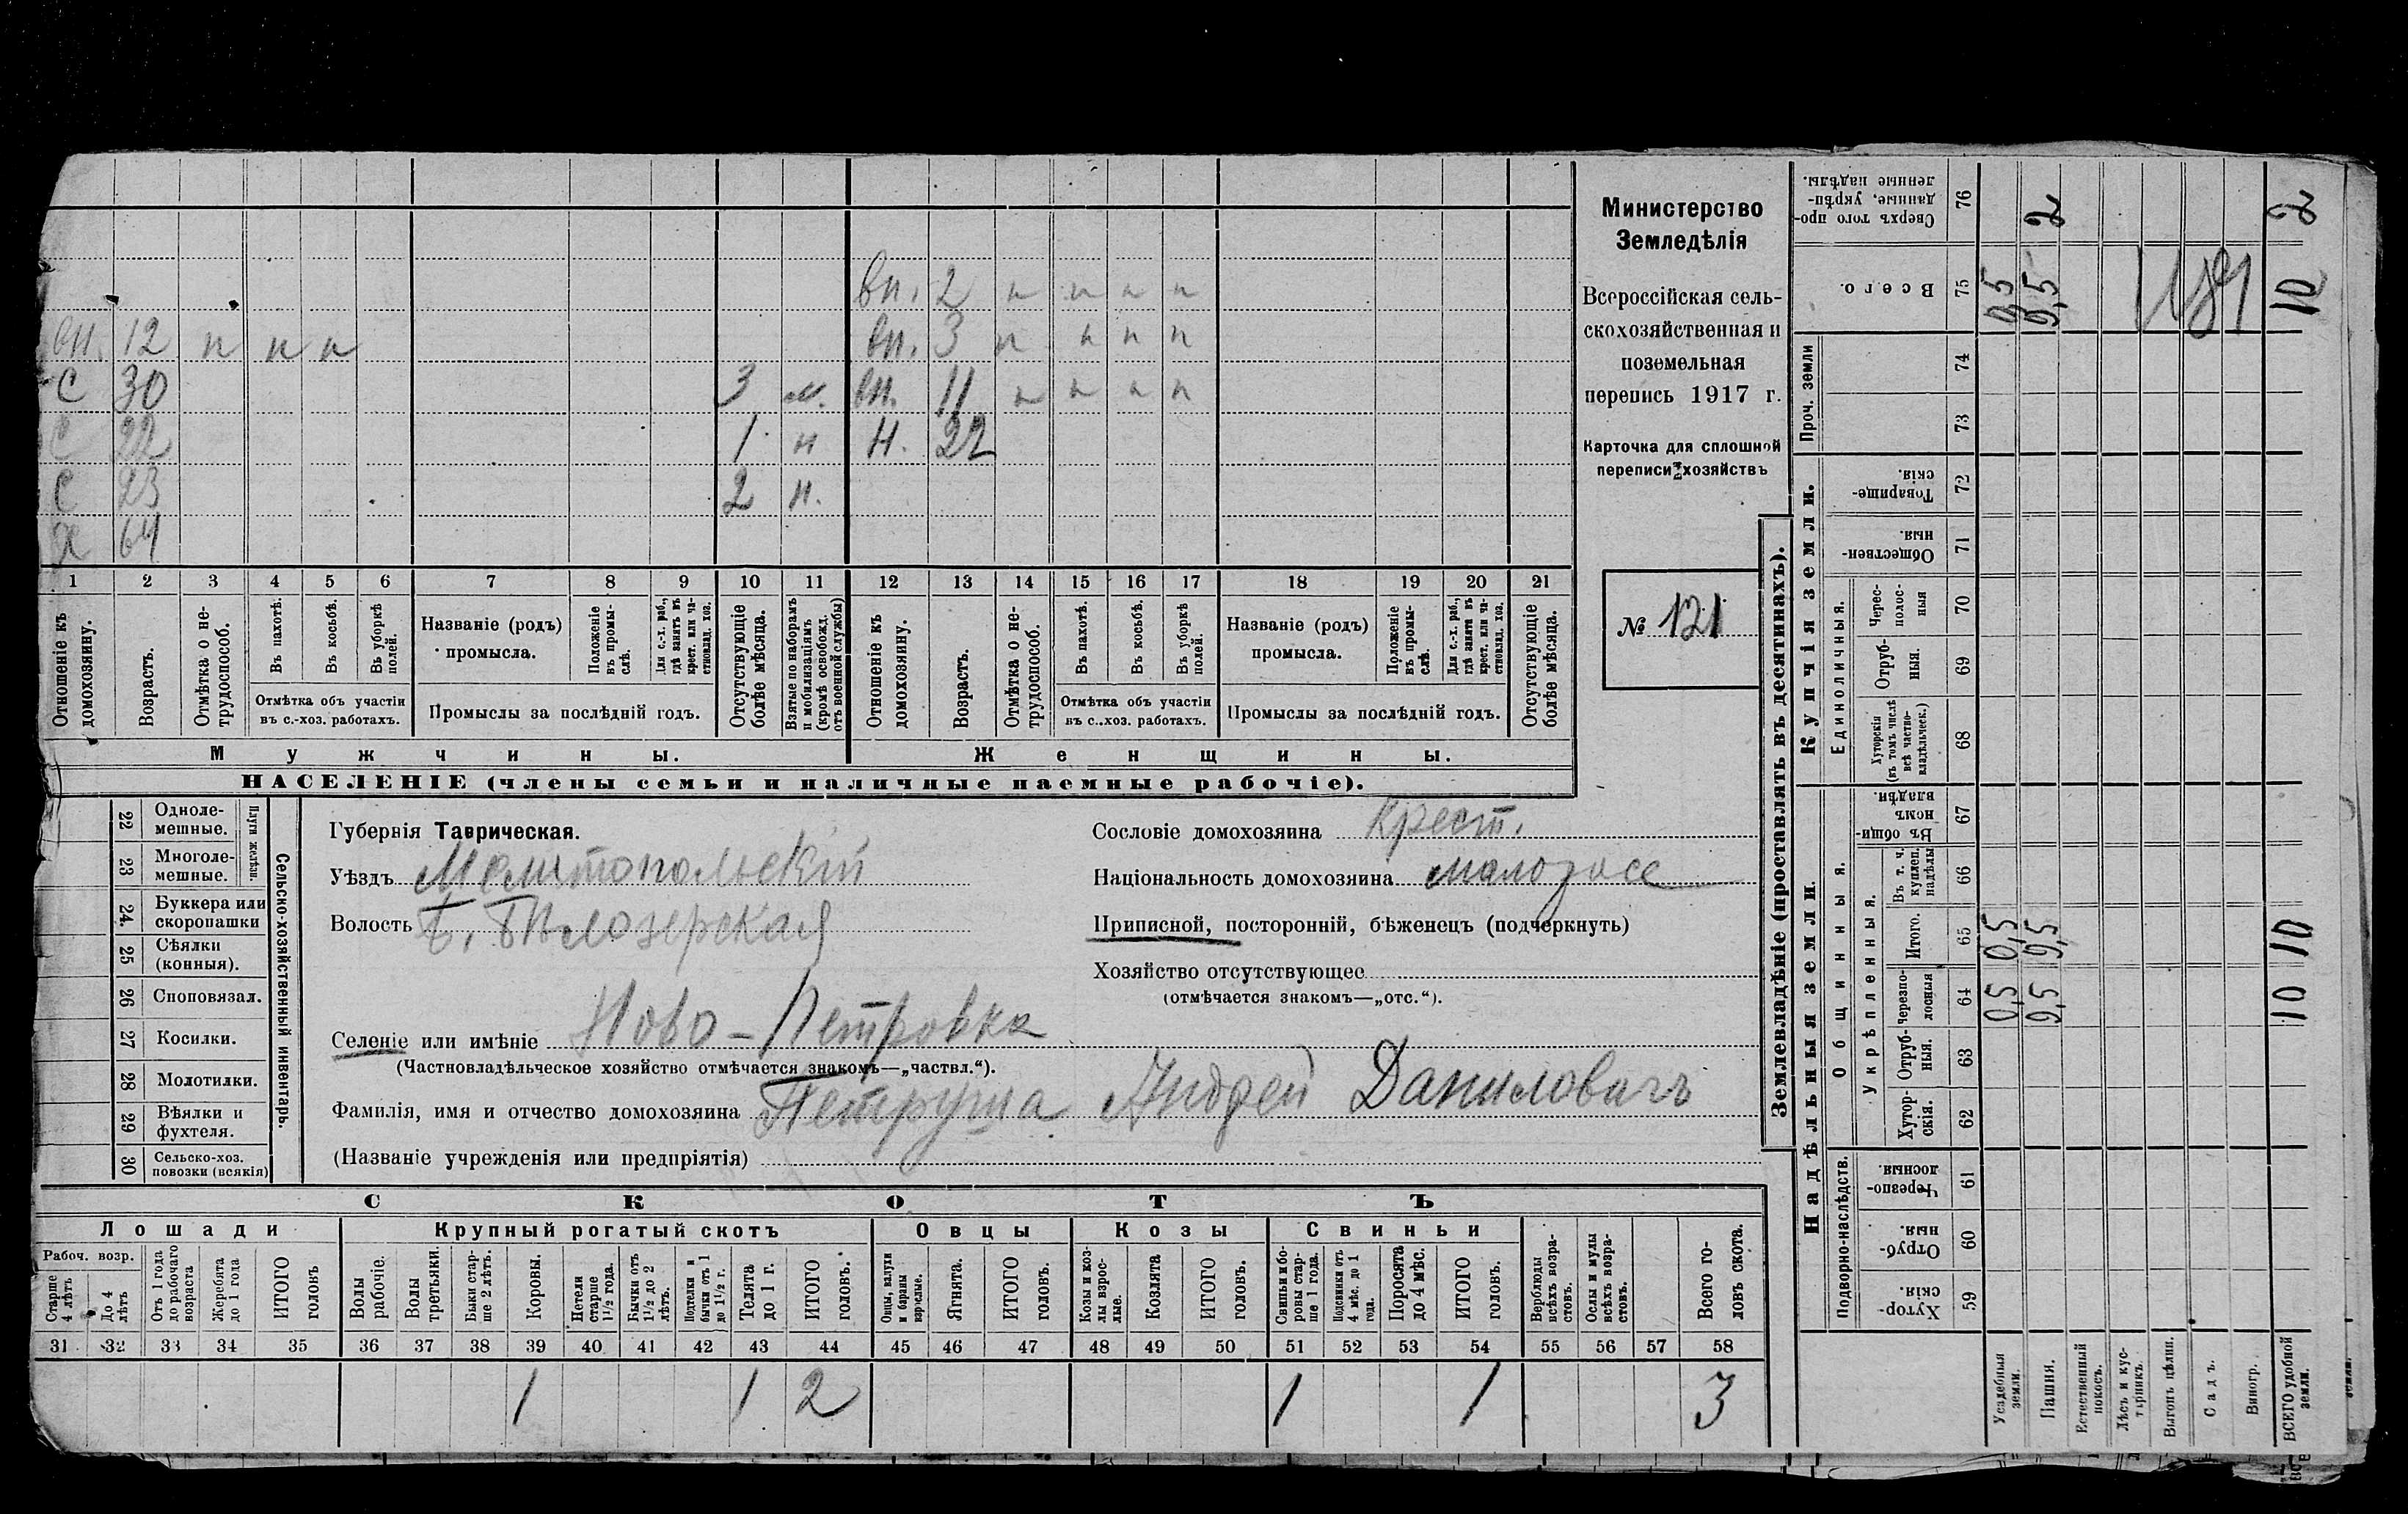 вн. 2 н н н н
вн. 12 н н н вн. 3 н н н н
С 30 3 м. вн. 11 н н н н
С 22 1 н Н. 22
С 23 2 н.
Х 64
1 2 3 4 5 6 7 8 9 10 11 12 13 14 15 16 17 18 19 20 21
Отношеніе къ домохозяину.
Возрастъ.
Отмѣтка о не-
трудоспособ.
Въ пахотѣ.
Въ косьбѣ.
Въ уборкѣ полей.
Отмѣтка объ участіи
въ с.-хоз. работахъ.
Названіе (родъ)
промысла.
Положеніе въ промы-
слѣ.
Для с.-х. раб., гдѣ занятъ въ крест. или ча-
стновлад. хоз.
Промыслы за послѣдній годъ.
Отсутствующіе болѣе мѣсяца.
Взятые по наборамъ и мобилизаціямъ (кромѣ освобожд. отъ военной службы)
Отношеніе къ домохозяину.
Возрастъ.
Отмѣтка о не-
трудоспособ.
Въ пахотѣ.
Въ косьбѣ.
Въ уборкѣ полей.
Отмѣтка объ участіи
въ с.-хоз. работахъ.
Названіе (родъ)
промысла.
Положеніе въ промы-
слѣ.
Для с.-х. раб., гдѣ занята въ крест. или ча-
стновлад. хоз.
Промыслы за послѣдній годъ.
Отсутствующіе болѣе мѣсяца.
Мужчины. Женщины.
НАСЕЛЕНІЕ (члены семьи и наличные наемные рабочіе).
Министерство
Земледѣлія
Всероссійская сель-
скохозяйственная и
поземельная
перепись 1917 г.
Карточка для сплошной
переписи хозяйствъ
№ 121
22 Одноле-
мешные.
23 Многоле-
мешные.
Плуги желѣзн.
24. Буккера или
скоропашки
25 Сѣялки
(конныя).
26 Сноповязал.
27 Косилки.
28 Молотилки.
29 Вѣялки и
фухтеля.
30 Сельско-хоз.
повозки (всякія)
Сельско-хозяйственный инвентарь.
Губернія Таврическая.
Уѣздъ Мелитопольскій
Волость Б. Бѣлозерская
Селеніе или имѣніе Ново-Петровка
(Частновладѣльческое хозяйство отмѣчается знакомъ—„частвл.“).
Фамилія, имя и отчество домохозяина Петруша Андрей Даниловичъ
(Названіе учрежденія или предпріятія)
Сословіе домохозяина Крест.
Національность домохозяина малоросс
Приписной, посторонній, бѣженецъ (подчеркнуть)
Хозяйство отсутствующее
(отмѣчается знакомъ—„отс.“).
СКОТЪ
Лошади Крупный рогатый скотъ Овцы Козы Свиньи
Рабоч. возр.
Старше 4 лѣтъ
До 4 лѣтъ
Отъ 1 года до рабочаго возраста
Жеребята до 1 года
ИТОГО головъ
Волы рабочіе.
Волы третьяки.
Быки стар-
ше 2 лѣтъ.
Коровы.
Нетели старше 1½ года.
Бычки отъ 1½ до 2 лѣтъ.
Подтелки и бычки отъ 1 до 1½ г.
Телята до 1 г.
ИТОГО головъ.
Овцы, валухи и бараны взрослые.
Ягнята.
ИТОГО головъ.
Козы и коз-
лы взрос-
лые.
Козлята
ИТОГО головъ.
Свиньи и бо-
ровы стар-
ше 1 года.
Подсвинки отъ 4 мѣс. до 1 года.
Поросята до 4 мѣс.
ИТОГО головъ.
Верблюды всѣхъ возра-
стовъ.
Ослы и мулы всѣхъ возра-
стовъ.
Всего го-
ловъ скота.
31 32 33 34 35 36 37 38 39 40 41 42 43 44 45 46 47 48 49 50 51 52 53 54 55 56 57 58
1 1 2 1 1 3
Землевладѣніе (проставлять въ десятинахъ).
Надѣльныя земли. Купчія земли.
Подворно-наслѣдств.
Общинныя.
Укрѣпленныя.
Единоличныя.
Проч. земли
Хутор-
скія. 59
Отруб-
ныя. 60
Черезпо-
лосныя 61
Хутор-
скія. 62
Отруб-
ныя. 63
Черезпо-
лосныя 64
Итого. 65
Въ т. ч. куплен. надѣлы 66
Въ общи-
номъ владѣн. 67
Хуторскія (въ томъ числѣ всѣ частно-
владѣльческ.) 68
Отруб-
ныя. 69
Черес-
полос-
ныя 70
Обществен-
ныя 71
Товарище-
скія. 72
73
74
Всего. 75
Сверхъ того про-
данные, укрѣп-
ленные надѣлы. 76
Усадебныя земли. 0,5 0,5 0,5
Пашня. 9,5 9,5 9,5 2
Естественный покосъ.
Лѣсъ и кус-
тарникъ.
Выгонъ цѣлин.
Садъ.
Виногр.
ВСЕГО удобной земли. 10 10 10 2